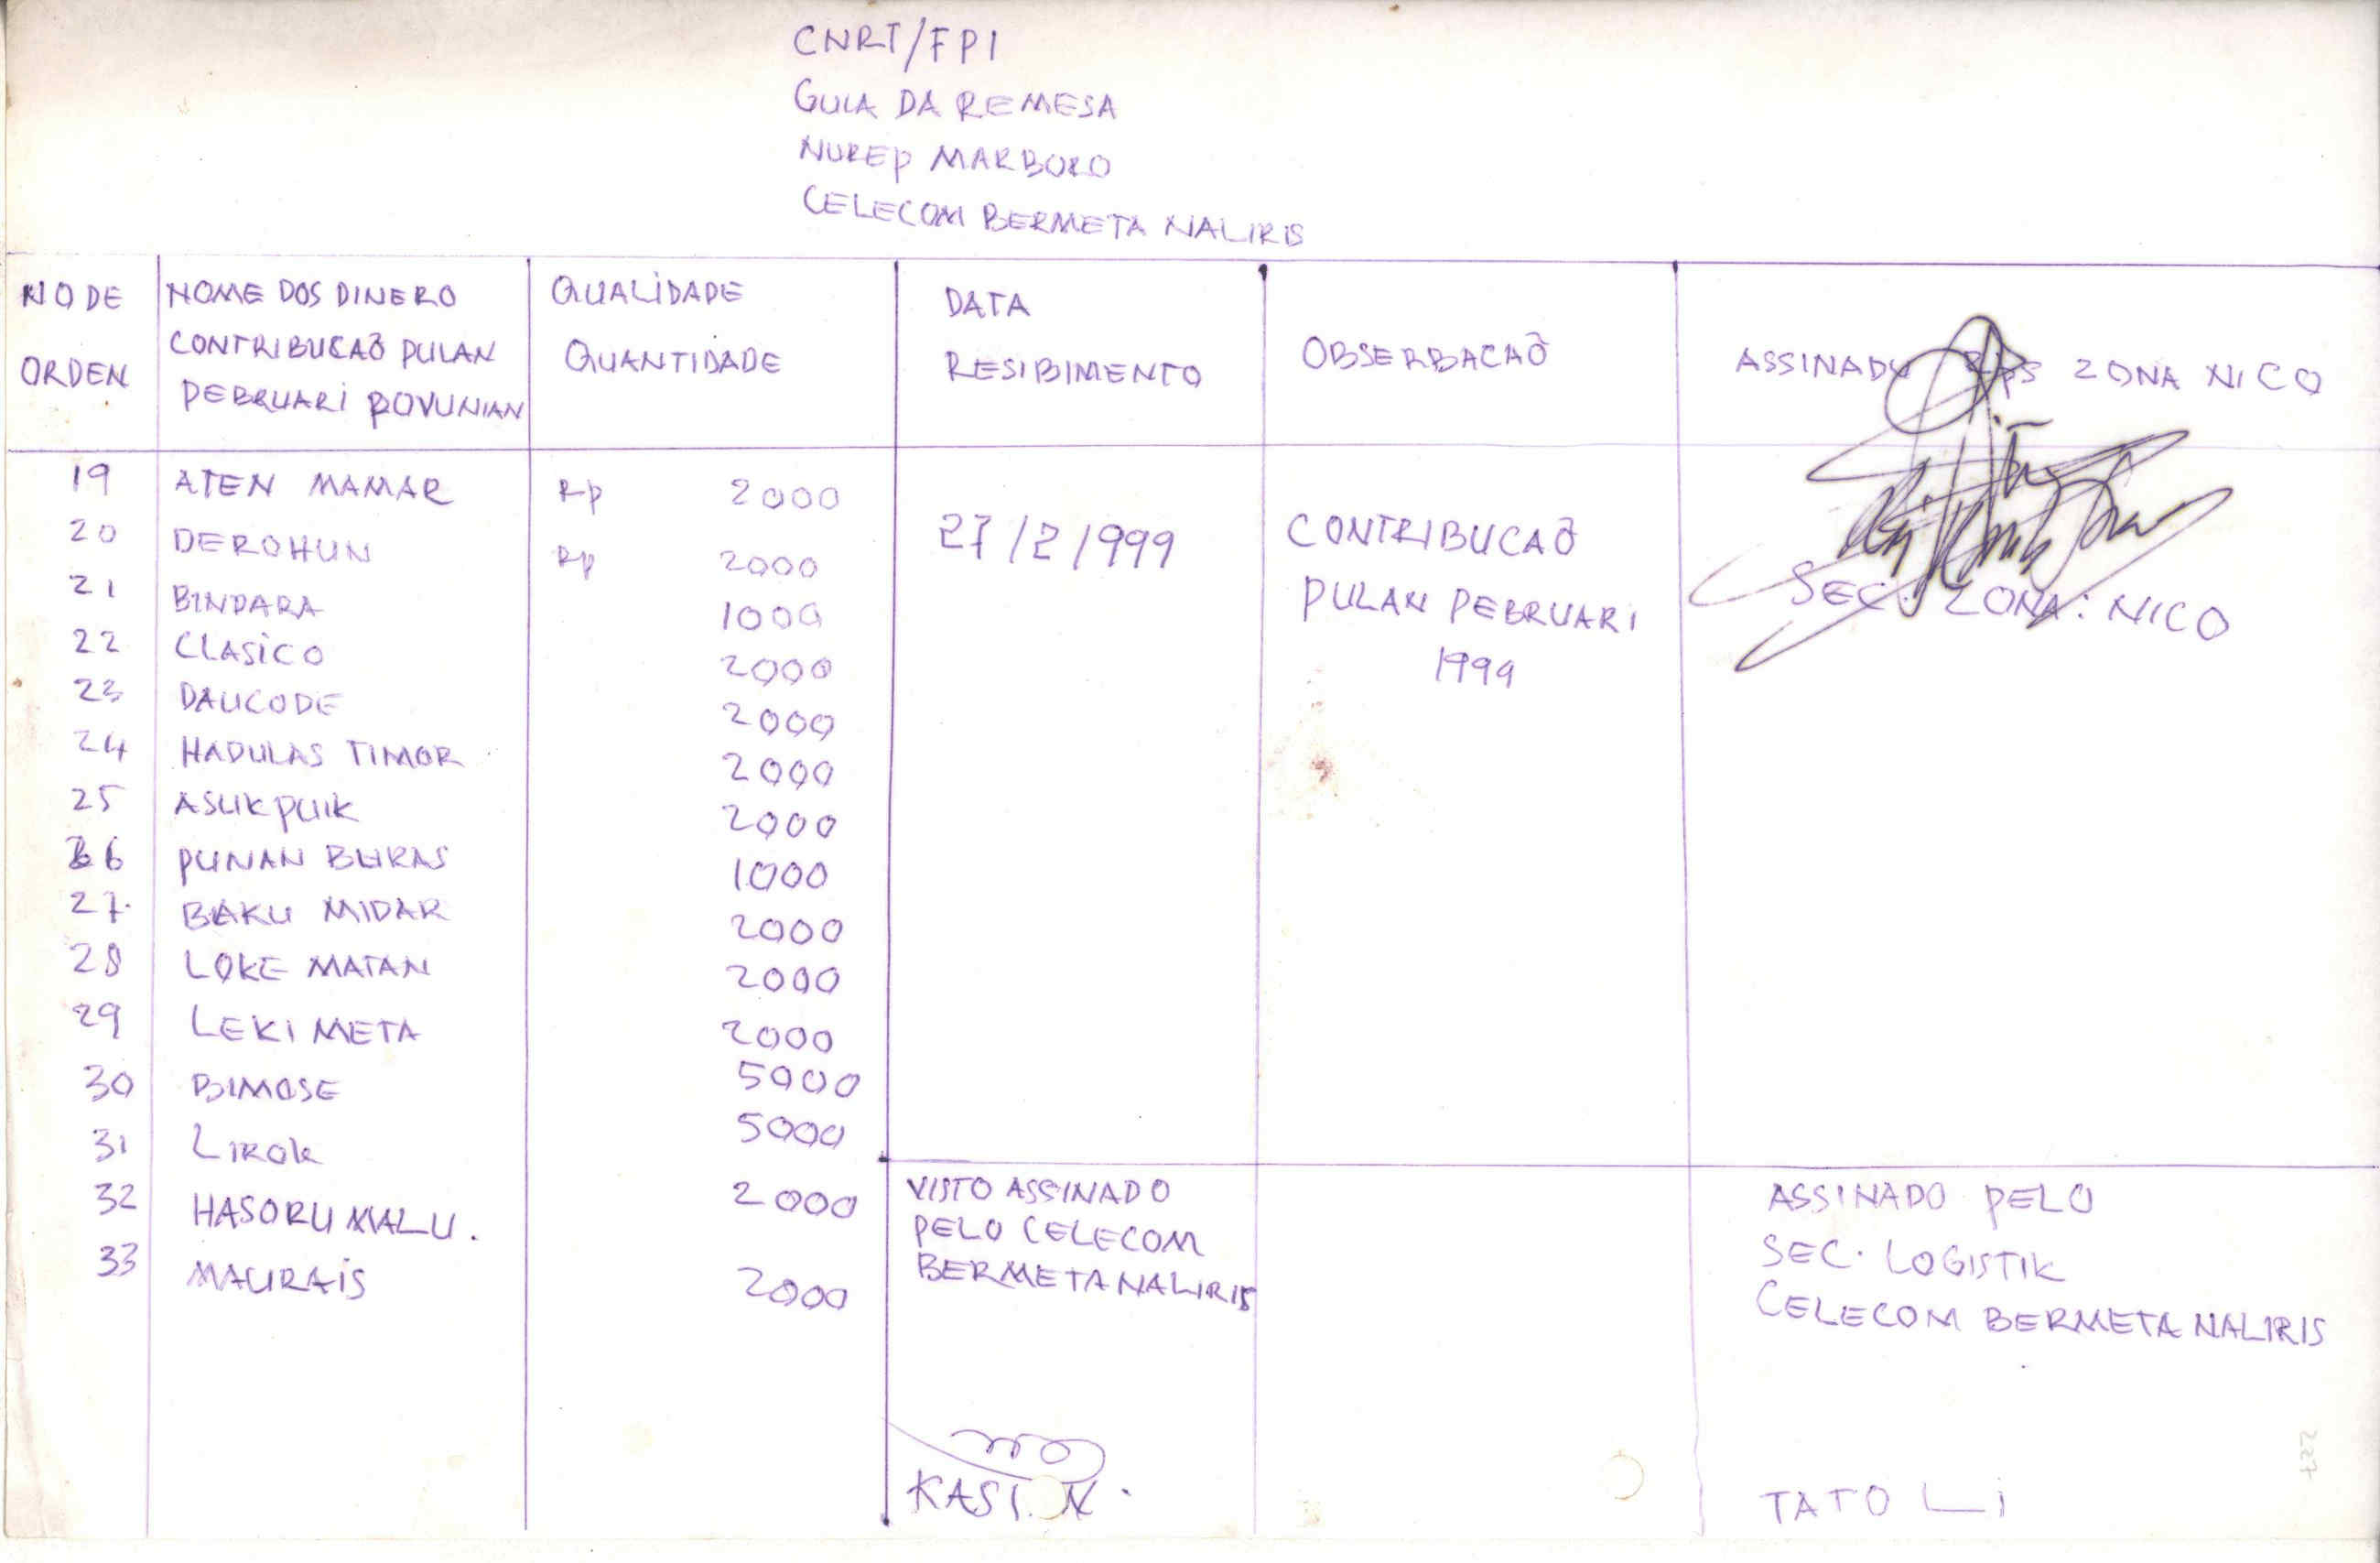 CNRT/FPI
GUIA DA REMESA
NUREP MARBORO
CELECOM BERMETA NALIRIS
NO DE
ORDEN
NOME DOS DINERO
CONTRIBUCAÕ PULAN
PEBRUARI POVUNIAN
QUALIDADE
QUANTIDADE
DATA
RESIBIMENTO
OBSERBACAÕ
ASSINADO ZONA NICO
19 ATEN MAMAR Rp 2000
20 DEROHUN Rp 2000
21 BINDARA 1000
22 CLASICO 2000
23 DAUCODE 2000
24 HADULAS TIMOR 2000
25 ASUKPUIK 2000
26 PUNAN BURAS 1000
27. BAKU MIDAR 2000
28 LOKE MATAN 2000
29 LEKI META 2000
30 BIMOSE 5000
31 LIROK 5000
32 HASORU MALU. 2000
33 MAURAIS 2000
27/2/1999
CONTRIBUCAÕ
PULAN PEBRUARI
1999
SEC. ZONA: NICO
VISTO ASSINADO
PELO CELECOM
BERMETA NALIRIS
KASI.N.
ASSINADO PELO
SEC. LOGISTIK
CELECOM BERMETA NALIRIS
TATO LI